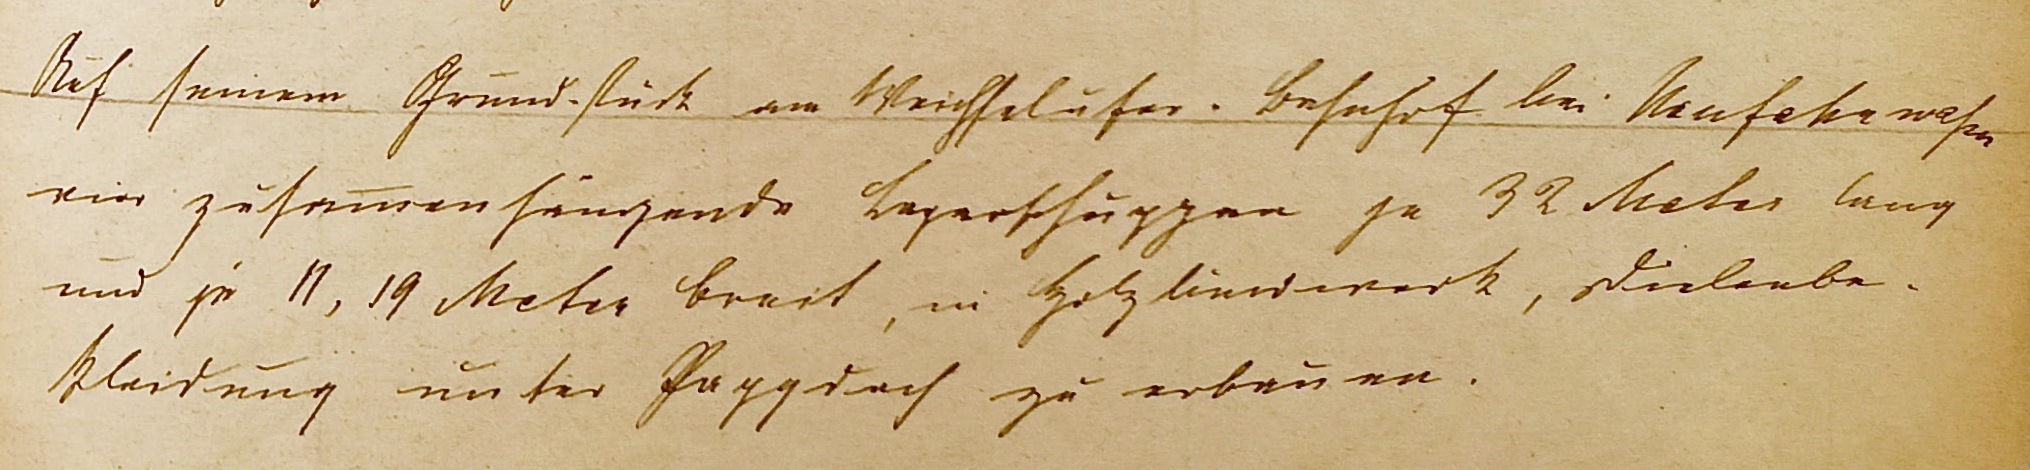 Auf seinem Grundstück am Weichselufer-Bahnhof bei Neufahrwasser
vier zusammenhängende Lagerschuppen je 32 Meter lang
und je 11,19 Meter breit, in Holzbindwerk, Dielenbe-
kleidung unter Pappdach zu erbauen.